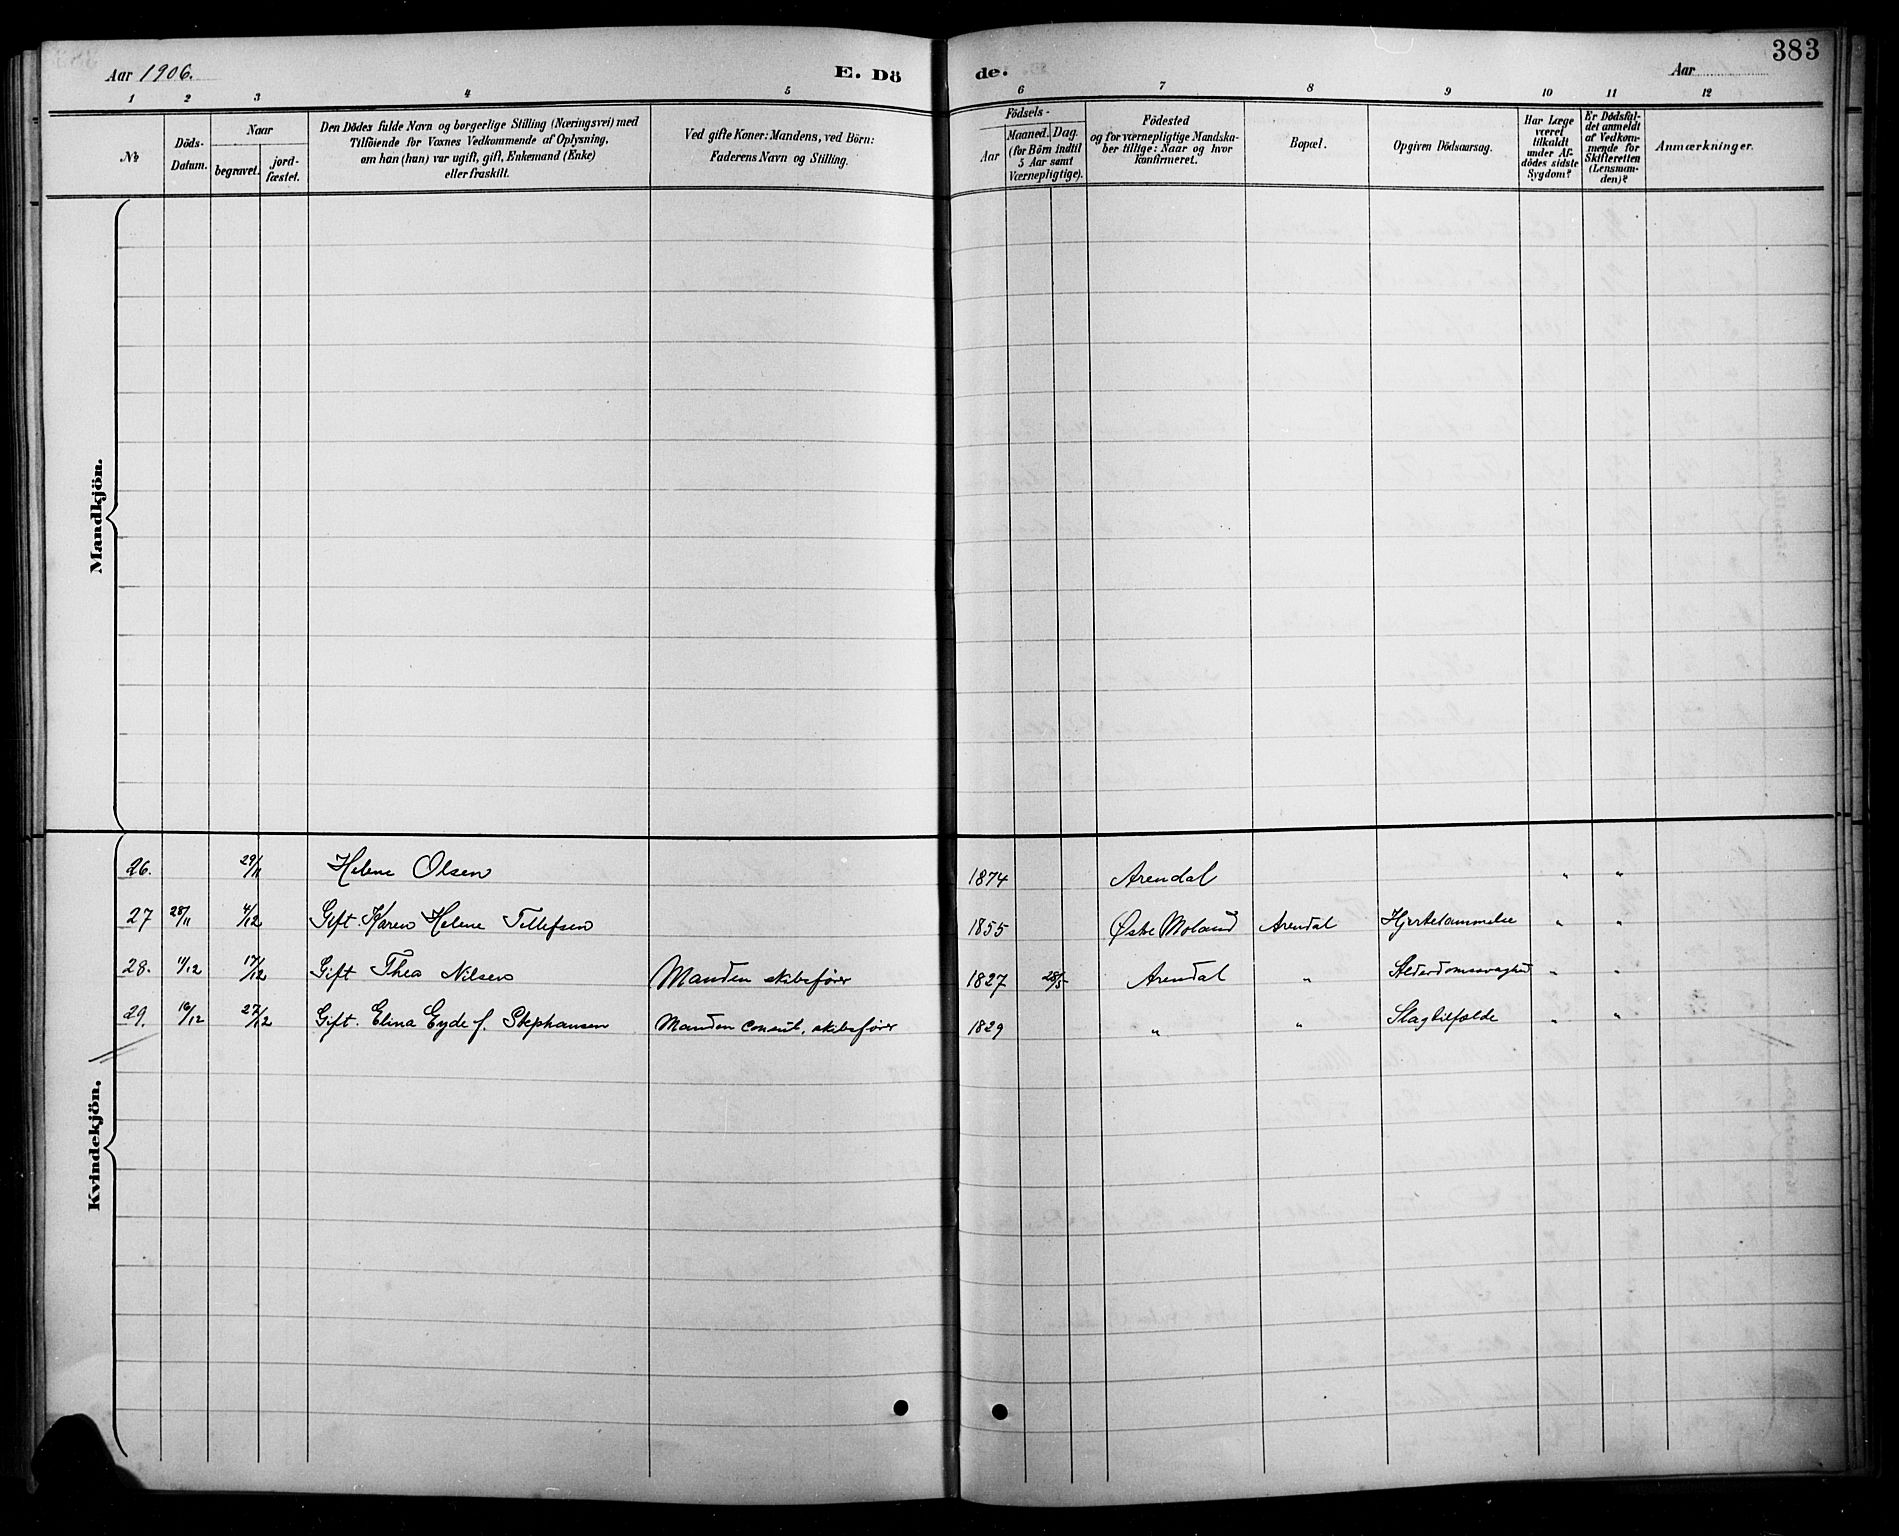 Aar 1906.
E. Dö
de.
Aar
383
1 2 3 4 5 6 7 8 9 10 11 12
№
Döds-
Datum.
Naar
begravet.
jord-
fæstet.
Den Dödes fulde Navn og borgerlige Stilling (Næringsvei) med
Tilföiende for Voxnes Vedkommende af Oplysning,
om han (hun) var ugift, gift, Enkemand (Enke)
eller fraskilt.
Ved gifte Koner: Mandens, ved Börn:
Faderens Navn og Stilling.
Födsels-
Aar
Maaned. Dag.
(for Börn indtil
5 Aar samt
Værnepligtige).
Födested
og for værnepligtige Mandska-
ber tillige: Naar og hvor
Konfirmeret.
Bopæl.
Opgiven Dödsaarsag.
Har Læge
været
tilkaldt
under Af-
dödes sidste
Sygdom?
Er Dødsfal-
det anmeldt
af Vedkom-
mende for
Skifteretten
(Lensman-
den)?
Anmærkninger.
Mandkjön.
Kvindekjön.
26. 29/11 Helene Olsen 1874 Arendal " "
27 28/11 4/12 Gift. Karen Helene Tellefsen 1855 Østre Moland Arendal Hjertelammelse " "
28. 11/12 17/12 Gift Thea Nilsen Manden skibsfører 1827 28/5 Arendal " Alderdomssvaghed " "
29. 16/12 27/12 Gift. Elina Eyde f. Stephansen Manden consul, skibsfører 1829 " " Slagtilfælde " "